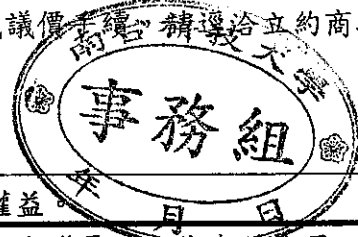 議價手續。請逕洽立約商
南台科技大學
事務組
年 月 日
權益。